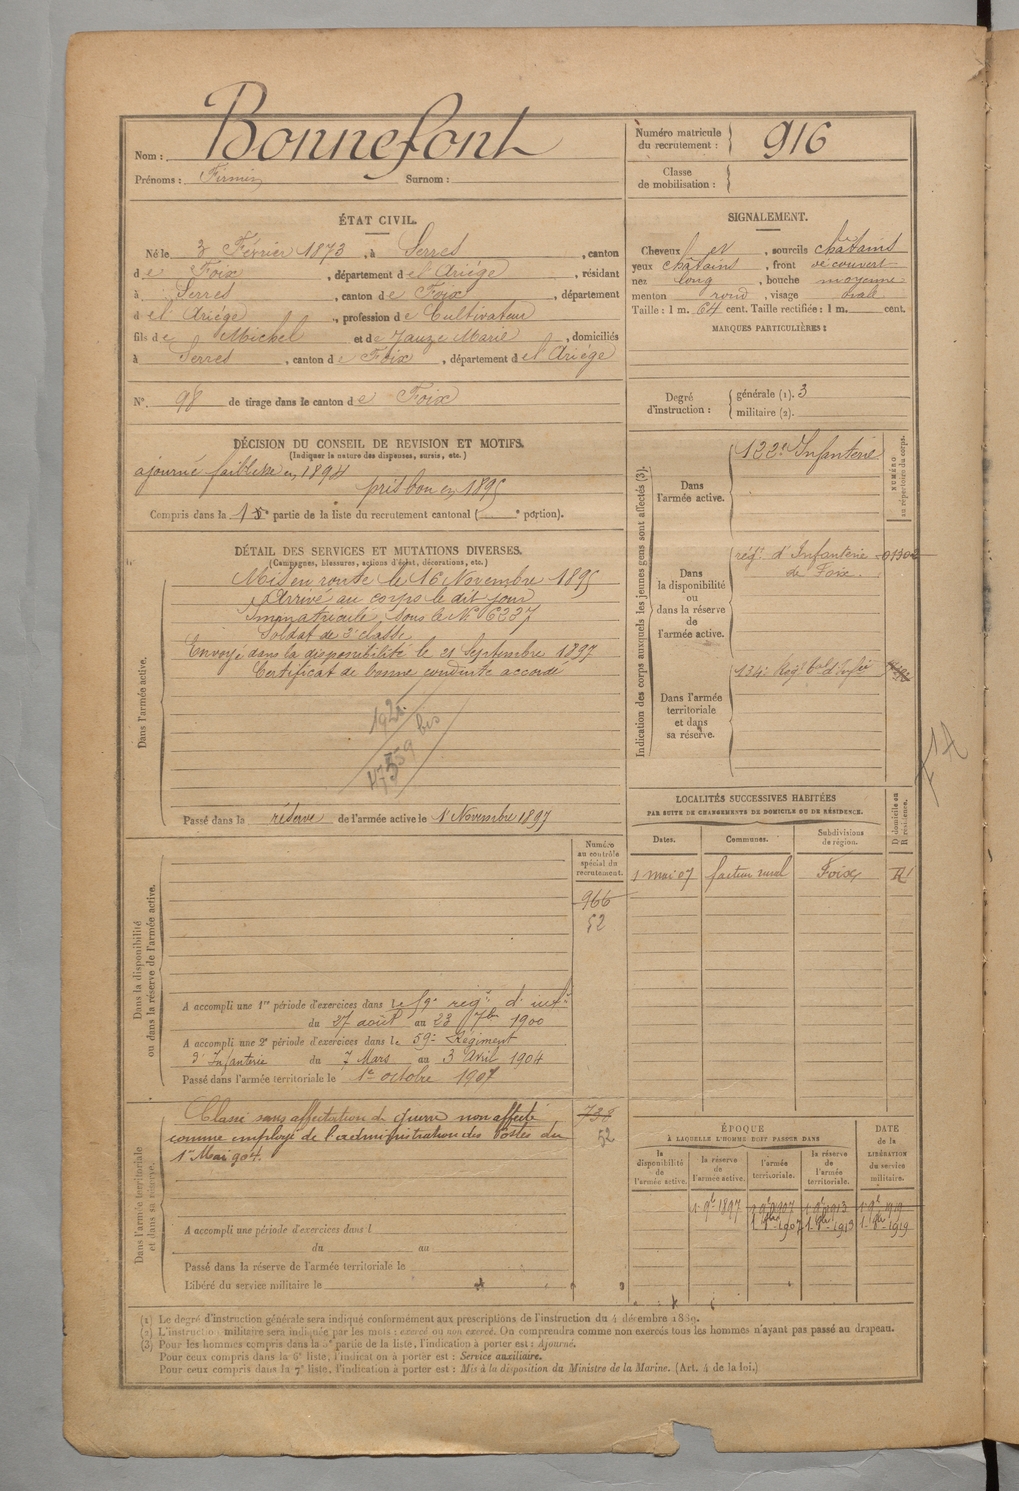 Nom : Bonnefont
Prénoms : Firmin Surnom :
Numéro matricule du recrutement : 916
Classe de mobilisation :
ÉTAT CIVIL.
Né le 3 Février 1873, à Serres, canton
de Foix, département de l'Ariège, résidant
à Serres, canton de Foix, département
de l'Ariège, profession de Cultivateur
fils de Michel et de Jauze Marie, domiciliés
à Serres, canton de Foix, département de l'Ariège
N° 98 de tirage dans le canton de Foix
SIGNALEMENT.
Cheveux et, sourcils châtains
yeux châtains, front découvert
nez long, bouche moyenne
menton rond, visage ovale
Taille : 1 m. 64 cent. Taille rectifiée : 1 m. cent.
MARQUES PARTICULIÈRES :
Degré d'instruction : générale (1). 3
militaire (2).
DÉCISION DU CONSEIL DE REVISION ET MOTIFS.
(Indiquer la nature des dispenses, sursis, etc.)
ajourné faiblesse en 1894
pris bon en 1895
Compris dans la 1e partie de la liste du recrutement cantonal ( e portion).
DÉTAIL DES SERVICES ET MUTATIONS DIVERSES.
(Campagnes, blessures, actions d'éclat, décorations, etc.)
Dans l'armée active.
Mis en route le 16 Novembre 1895
Arrivé au corps le dit jour
Immatriculé sous le N° 6237
Soldat de 2e classe
Envoyé dans la disponibilité le 21 Septembre 1897
Certificat de bonne conduite accordé
Passé dans la réserve de l'armée active le 1 Novembre 1897
Indication des corps auxquels les jeunes gens sont affectés (3).
NUMÉRO au répertoire du corps.
Dans l'armée active.
122e Infanterie
Dans la disponibilité ou dans la réserve de l'armée active.
régt d'Infanterie
de Foix.
Dans l'armée territoriale et dans sa réserve.
134e Régt
LOCALITÉS SUCCESSIVES HABITÉES
PAR SUITE DE CHANGEMENTS DE DOMICILE OU DE RÉSIDENCE.
Dates. Communes. Subdivisions de région. D. domicile ou R. résidence.
1 mai 07 facteur rural Foix R
Dans la disponibilité ou dans la réserve de l'armée active.
Numéro au contrôle spécial du recrutement.
966
52
A accompli une 1re période d'exercices dans le 59e régt d'inft
du 27 août au 23 7bre 1900
A accompli une 2e période d'exercices dans le 59e Régiment
d'Infanterie du 7 Mars au 3 Avril 1904
Passé dans l'armée territoriale le 1er octobre 1907
Dans l'armée territoriale et dans sa réserve.
Classé sans affectation de guerre non affecté
comme employé de l'administration des Postes du
1er Mai 907.
52
A accompli une période d'exercices dans l
du au
Passé dans la réserve de l'armée territoriale le
Libéré du service militaire le
ÉPOQUE
À LAQUELLE L'HOMME DOIT PASSER DANS
la disponibilité de l'armée active.
la réserve de l'armée active.
l'armée territoriale.
la réserve de l'armée territoriale.
DATE de la LIBÉRATION du service militaire.
1. 9bre 1897 1. 9bre 1907 1. 9bre 1913 1. 9bre 1919
1. 8bre 1907 1. 8bre 1913 1. 8bre 1919
(1) Le degré d'instruction générale sera indiqué conformément aux prescriptions de l'instruction du 4 décembre 1889.
(2) L'instruction militaire sera indiquée par les mots : exercé ou non exercé. On comprendra comme non exercés tous les hommes n'ayant pas passé au drapeau.
(3) Pour les hommes compris dans la 5e partie de la liste, l'indication à porter est : Ajourné.
Pour ceux compris dans la 6e liste, l'indication à porter est : Service auxiliaire.
Pour ceux compris dans la 7e liste, l'indication à porter est : Mis à la disposition du Ministre de la Marine. (Art. 4 de la loi.)